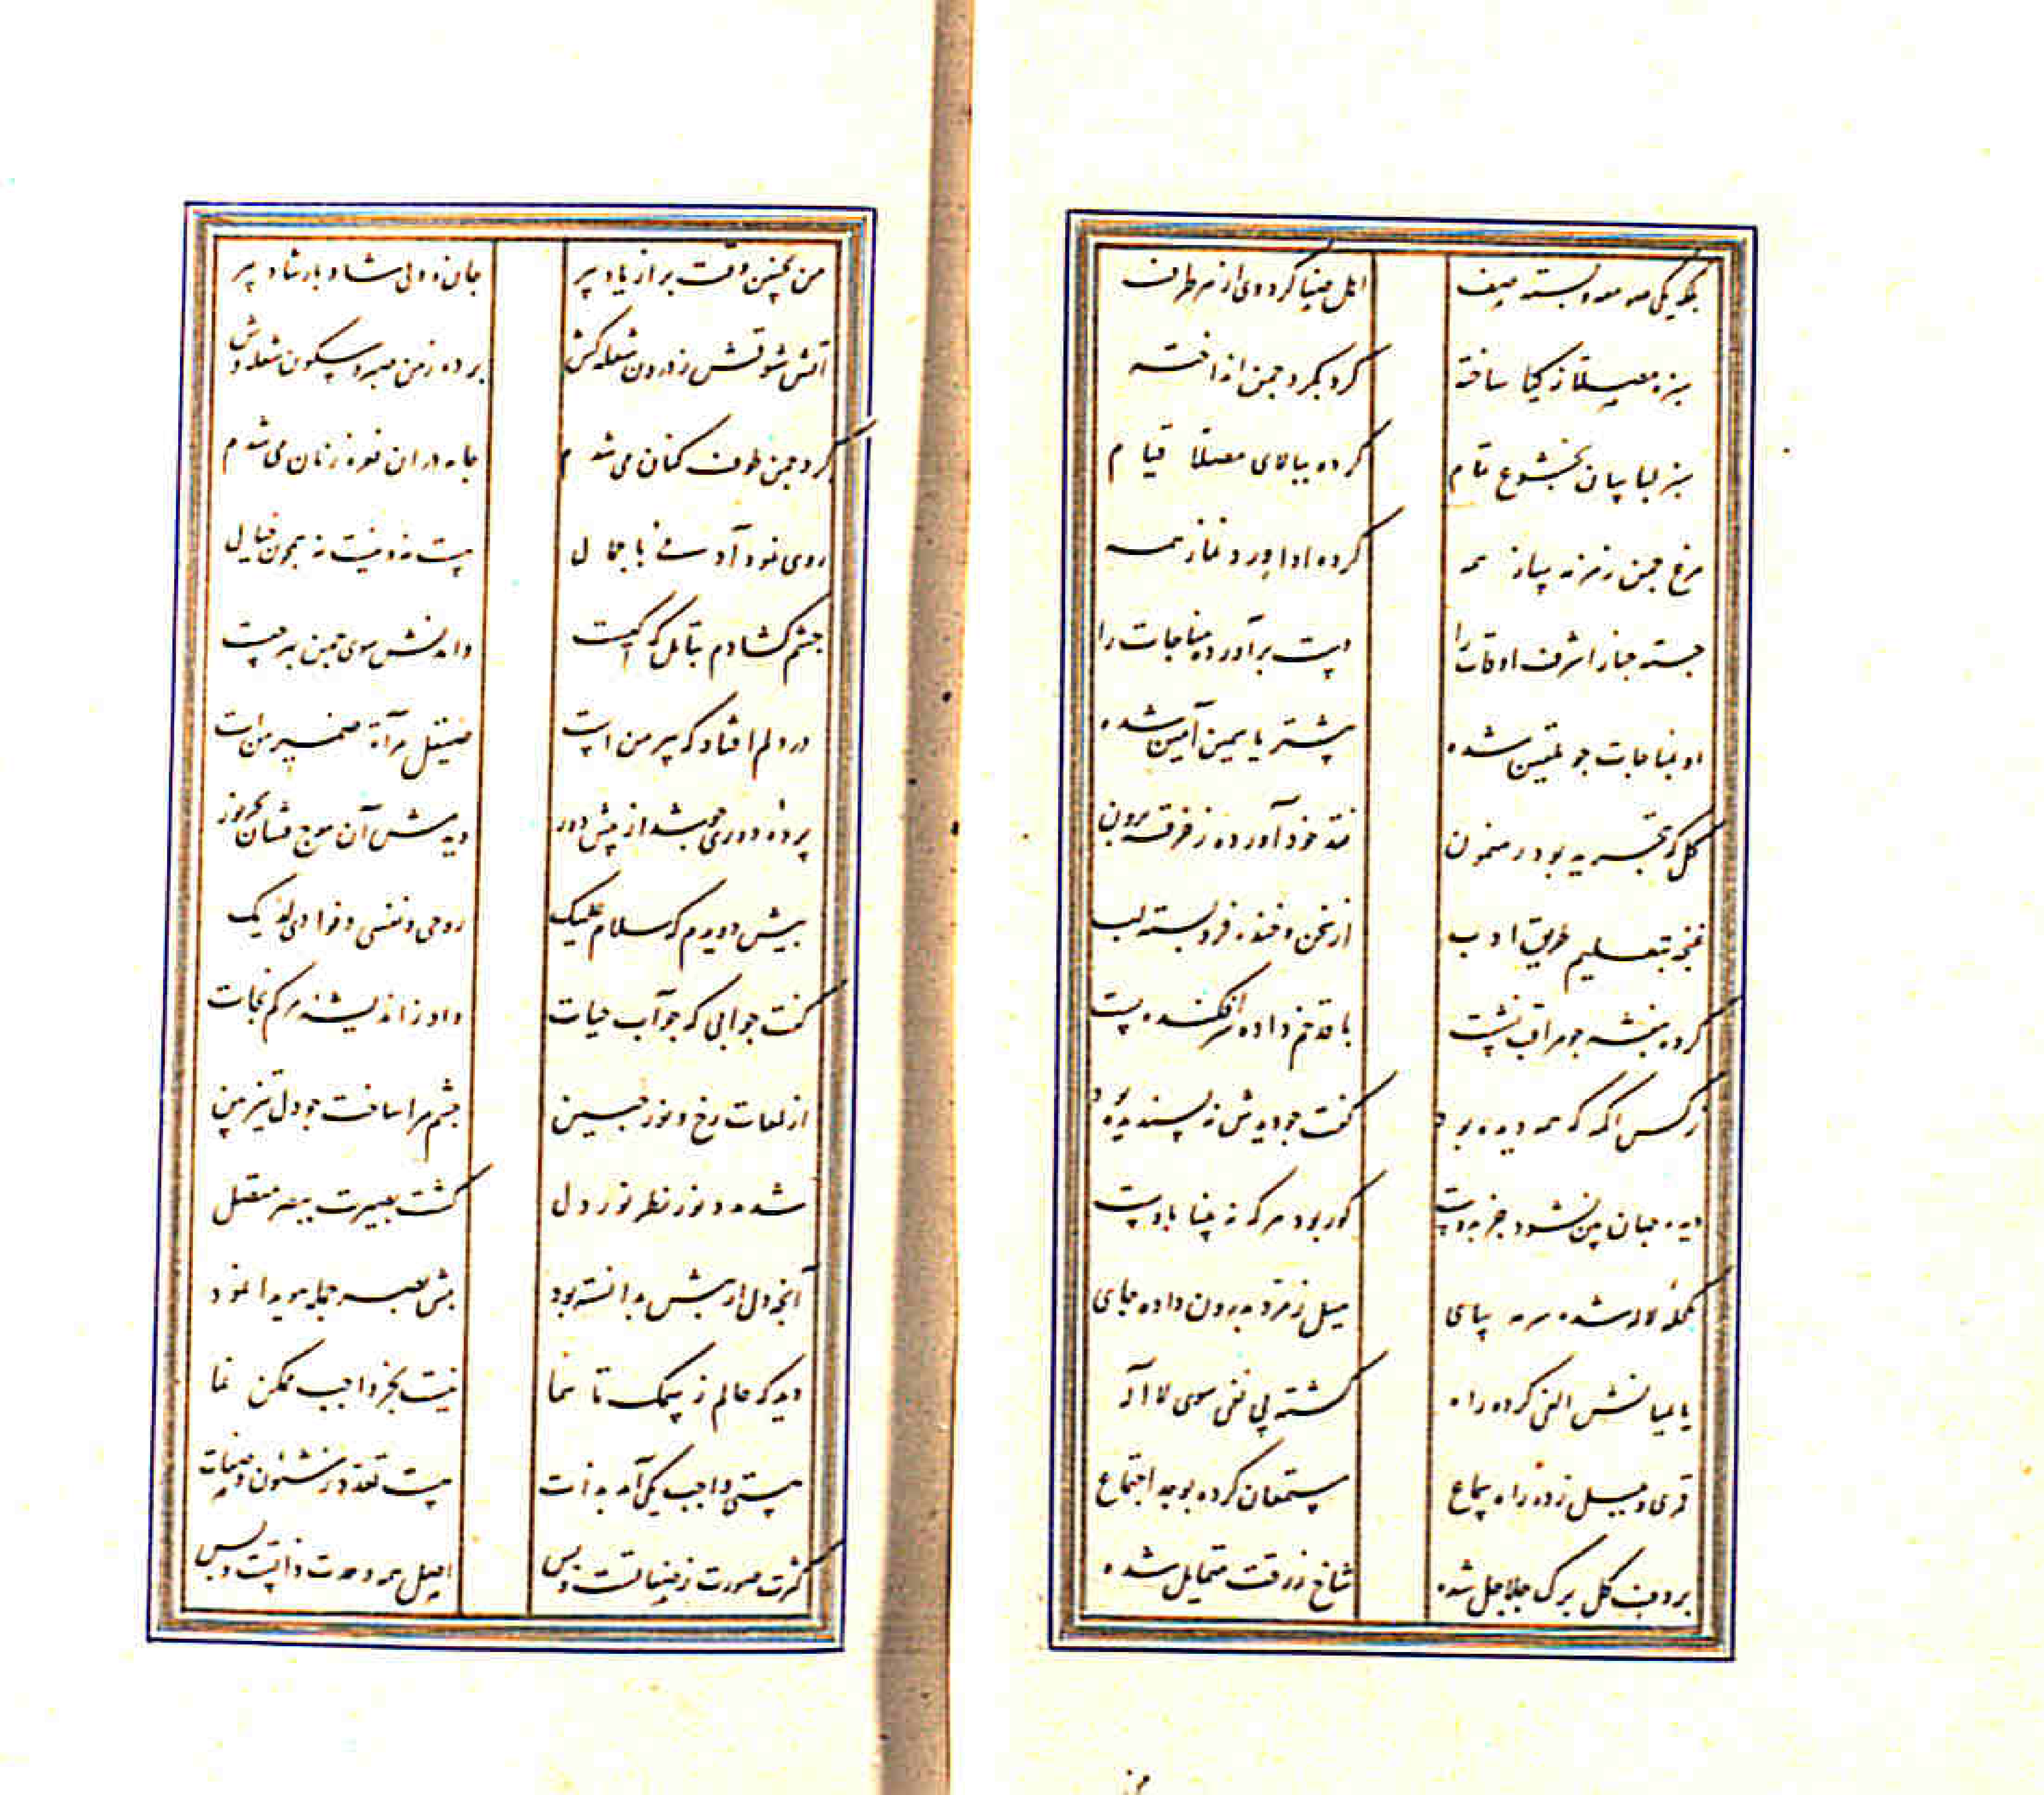 بلکه یکی صومعه و بسته صف اهل صفا گرد وی از هر طرف
سبزه مصلا ز گیا ساخته گرد بگرد چمن انداخته
سبز لباسان بخشوع تمام کرده ببالای مصلا قیام
مرغ چمن زمزمه پرداز همه کرده ادا ورد نماز همه
جسته چنار اشرف اوقات را دست برآورده مناجات را
او بمناجات چو تلقین شده پشتر یاسمین آمین شده
گل که بتجرید بود رهنمون نقد خود آورده ز خرقه برون
غنچه بتعلیم طریق ادب از سخن و خنده فرو بسته لب
کرده بنفشه چو مراقب نشست با قد خم داده سر افکنده پست
نرگس اکمه که همه دیده بود گفت چو دیدش نه پسندیده بود
دیده جهان بین نشود جز بدوست کور بود هر که نه بینا بدوست
مکحله لاله شده سرمه سای میل زمرد بدرون داده جای
یا بمیانش الفی کرده راه گشته پی نفی سوی لا اله
قمری و بلبل زده راه سماع مستمعان کرده بوجد اجتماع
بر دف گل برگ جلاجل شده شاخ ز رقت متمایل شده
من بچنین وقت بر از یاد پیر جان و دلی شاد بارشاد پیر
آتش شوقش ز درون شعله کش برده ز من صبر و سکون شعله وش
گرد چمن طوف کنان می شدم جامه دران نعره زنان می شدم
روی نمود آدمئی با جمال هست نه و نیست نه همچون خیال
چشم گشادم بتامل که کیست وامدنش سوی چمن بهر چیست
در دلم افتاد که پیر من است صیقل مرآة ضمیر من است
پرده دوری چو شد از پیش دور دیدمش آن موج فشان بحر نور
پیش دویدم که سلام علیک روحی و نفسی و فوادی لدیک
گفت جوابی که چو آب حیات داد ز اندیشه مرگم نجات
از لمعات رخ و نور جبین چشم مرا ساخت چو دل تیزبین
شد مدد نور نظر نور دل گشت بصیرت ببصر متصل
آنچه دل از پیش بدانسته بود پیش بصر جمله هویدا نمود
دید که عالم ز سمک تا سما نیست بجز واجب ممکن نما
هستی واجب یکی آمد بذات هست تعدد ز شئون و صفات
کثرت صورت ز صفاتست و بس اصل همه وحدت ذاتست و بس
من